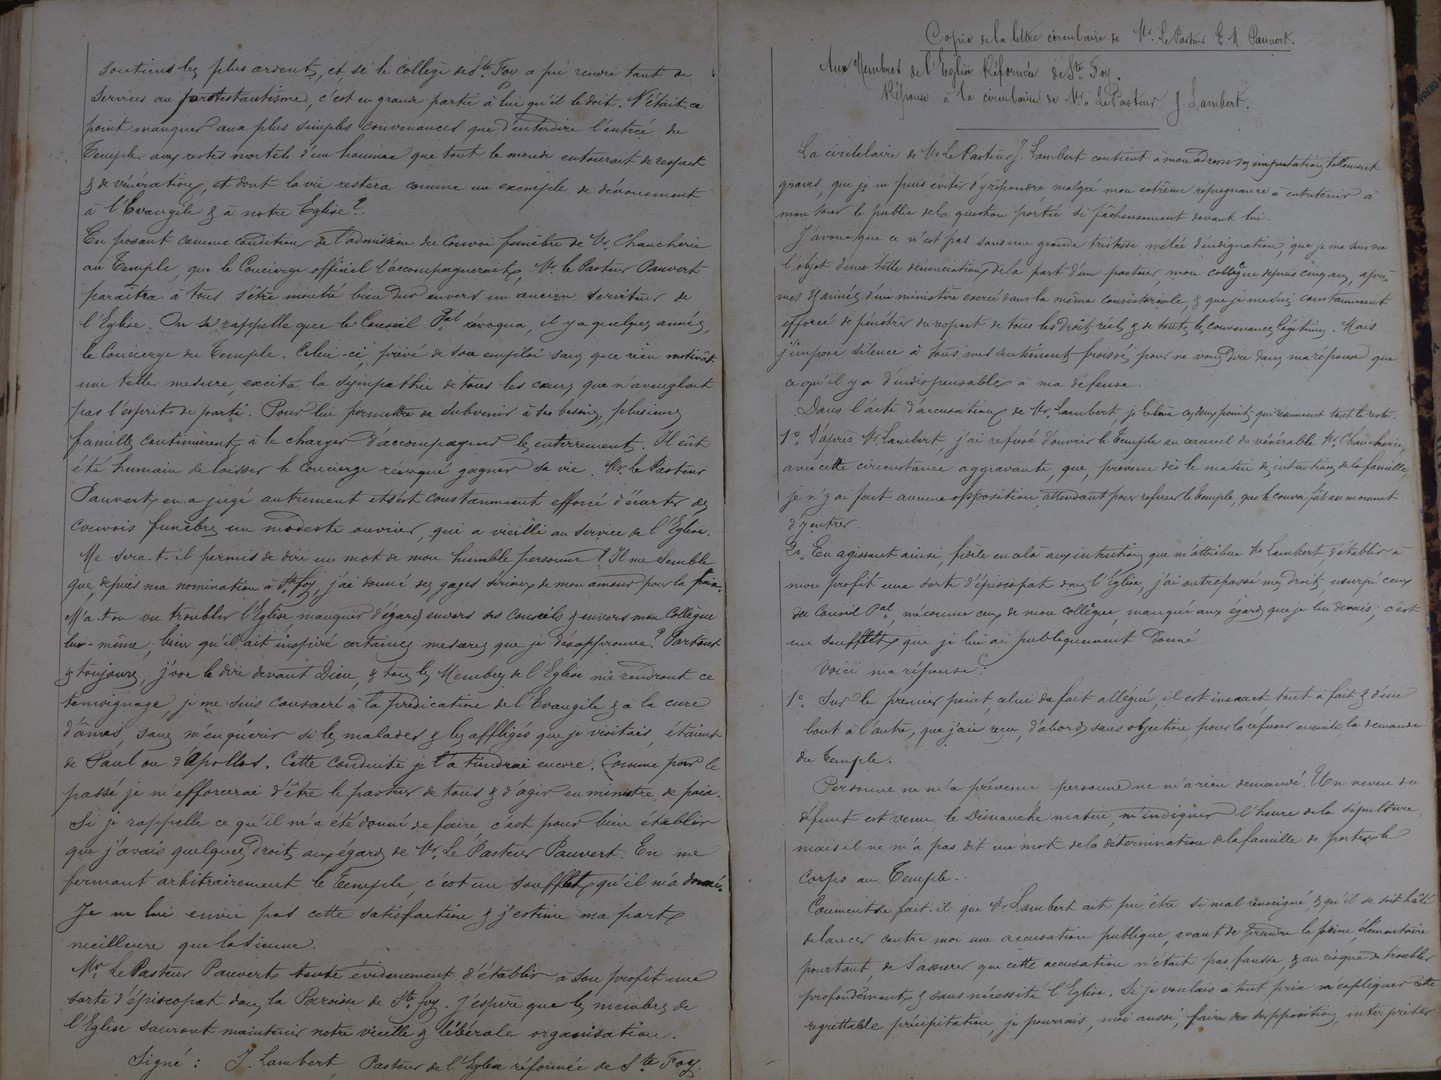 soutiens les plus ardents, et, si le collège de Ste Foy a pu rendre tant de
services au protestantisme, c'est en grande partie à lui qu'il le doit. N'était-ce
point manquer aux plus simples convenances que d'interdire l'entrée du
Temple aux restes mortels d'un homme que tout le monde entourait de respect
& de vénération, et dont la vie restera comme un exemple de dévouement
à l'Evangile & à notre Eglise ?.
En posant comme condition de l'admission du Convoi funèbre de Mr. Chaucherie
au Temple, que le Concierge officiel l'accompagnerait, Mr. le Pasteur Pauvert
paraîtra à tous s'être montré bien dur envers un ancien serviteur de
l'Eglise. On se rappelle que le Conseil Pal révoqua, il y a quelques années,
le Concierge du Temple. Celui-ci, privé de son emploi sans que rien motivât
une telle mesure, excita la sympathie de tous les cœurs que n'aveuglait
pas l'esprit de parti. Pour lui permettre de subvenir à ses besoins, plusieurs
familles continuèrent à le charger d'accompagner les enterrements. Il eût
été humain de laisser le Concierge révoqué gagner sa vie. Mr. le Pasteur
Pauvert en a jugé autrement et s'est constamment efforcé d'écarter des
convois funèbres un modeste ouvrier, qui a vieilli au service de l'Eglise.
Me sera-t-il permis de dire un mot de mon humble personne ? Il me semble
que, depuis ma nomination à Ste Foy, j'ai donné des gages sérieux de mon amour pour la paix.
M'a-t-on vu troubler l'Eglise manquer d'égards envers ses Conseils & envers mon Collègue
lui-même, bien qu'il ait inspiré certaines mesures que je désapprouve ? Partout
& toujours, j'ose le dire devant Dieu, & tous les Membres de l'Eglise me rendront ce
témoignage, je me suis consacré à la prédication de l'Evangile & à la cure
d'âmes, sans m'enquérir si les malades & les affligés que je visitais, étaient
de Paul ou d'Apollos. Cette conduite je la tiendrai encore. Comme par le
passé je m'efforcerai d'être le pasteur de tous & d'agir en ministre de paix.
Si je rappelle ce qu'il m'a été donné de faire, c'est pour bien établir
que j'avais quelques droits aux égards de Mr. Le Pasteur Pauvert. En me
fermant arbitrairement le Temple, c'est un soufflet qu'il m'a donné.
Je ne lui envie pas cette satisfaction & j'estime ma part
meilleure que la sienne.
Mr. Le Pasteur Pauvert tente évidemment d'établir à son profit une
sorte d'épiscopat dans la Paroisse de Ste Foy. J'espère que les membres de
l'Eglise sauront maintenir notre vieille & libérale organisation.
Signé : J. Lambert, Pasteur de l'Eglise réformée de Ste Foy.
Copie de la lettre circulaire de Mr. Le Pasteur E. A. Pauvert.
Aux Membres de l'Eglise Réformée de Ste Foy.
Réponse à la circulaire de Mr. Le Pasteur J. Lambert.
La circulaire de Mr. Le Pasteur J. Lambert contient à mon adresse des imputations tellement
graves, que je ne puis éviter d'y répondre malgré mon extrême répugnance à entretenir à
mon tour le public de la question portée si fâcheusement devant lui.
J'avoue que ce n'est pas sans une grande tristesse mêlée d'indignation, que je me suis vu
l'objet d'une telle dénonciation de la part d'un pasteur, mon collègue depuis cinq ans, après
mes années d'un ministère exercé dans la même consistoriale, & que je me suis constamment
efforcé de pénétrer du respect de tous les droits réels & de toutes les convenances légitimes. Mais
j'impose silence à tous mes sentiments froissés pour ne vous dire dans ma réponse que
ce qu'il y a d'indispensable à ma défense.
Dans l'acte d'accusation de Mr. Lambert, je relève ces deux points qui résument tout le reste.
1o. D'après Mr. Lambert, j'ai refusé d'ouvrir le Temple au cercueil du vénérable Mr. Chaucherie,
avec cette circonstance aggravante, que, prévenu dès le matin des intentions de la famille,
je n'y ai fait aucune opposition, attendant pour refuser le Temple, que le convoi fût au moment
d'y entrer.
2o. En agissant ainsi, fidèle en cela aux intentions que m'attribue Mr. Lambert, d'établir à
mon profit une sorte d'épiscopat dans l'Eglise, j'ai outrepassé mes droits, usurpé ceux
du Conseil Pal, méconnu ceux de mon collègue, manqué aux égards que je lui devais ; c'est
un soufflet que je lui ai publiquement donné.
Voici ma réponse :
1o. Sur le premier point, celui du fait allégué, il est inexact tout à fait & d'un
bout à l'autre, que j'aie reçu, d'abord sans objection pour la refuser ensuite la demande
du Temple.
Personne ne m'a prévenu personne ne m'a rien demandé. Un neveu du
défunt est venu, le Dimanche matin, m'indiquer l'heure de la sépulture,
mais il ne m'a pas dit un mot de la détermination de la famille de porter le
corps au Temple.
Comment se fait-il que Mr. Lambert ait pu être si mal renseigné, & qu'il se soit hâté
de lancer contre moi une accusation publique, avant de prendre la peine, élémentaire
pourtant de s'assurer que cette accusation n'était pas fausse, & au risque de troubler
profondément & sans nécessité l'Eglise. Si je voulais à tout prix m'expliquer cette
regrettable précipitation, je pourrais, moi aussi, faire des suppositions, interpréter